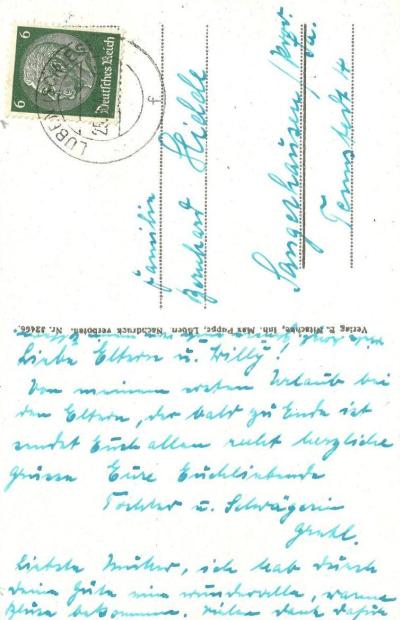 6 Deutsches Reich 6
LÜBBEN
Familie
Bernhard Hilde
Sangerhausen / Prov.
Sa.
Tennstedt 4
Verlag E. Nitschke, Inh. Max Puppe, Lübben. Nachdruck verboten. Nr. 32466.
Liebe Eltern u. Willy!
Von meinem ersten Urlaub bei
den Eltern, der bald zu Ende ist
sendet Euch allen recht herzliche
Grüsse Eure Euchliebende
Tochter u. Schwägerin
Gretl.
Liebste Mutter, ich hab durch
deine Güte eine wundervolle, warme
Bluse bekommen. Vielen Dank dafür